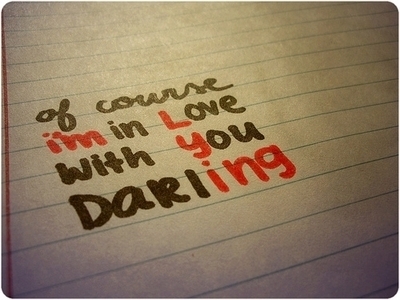 of course
i'm in Love
with you
Darling